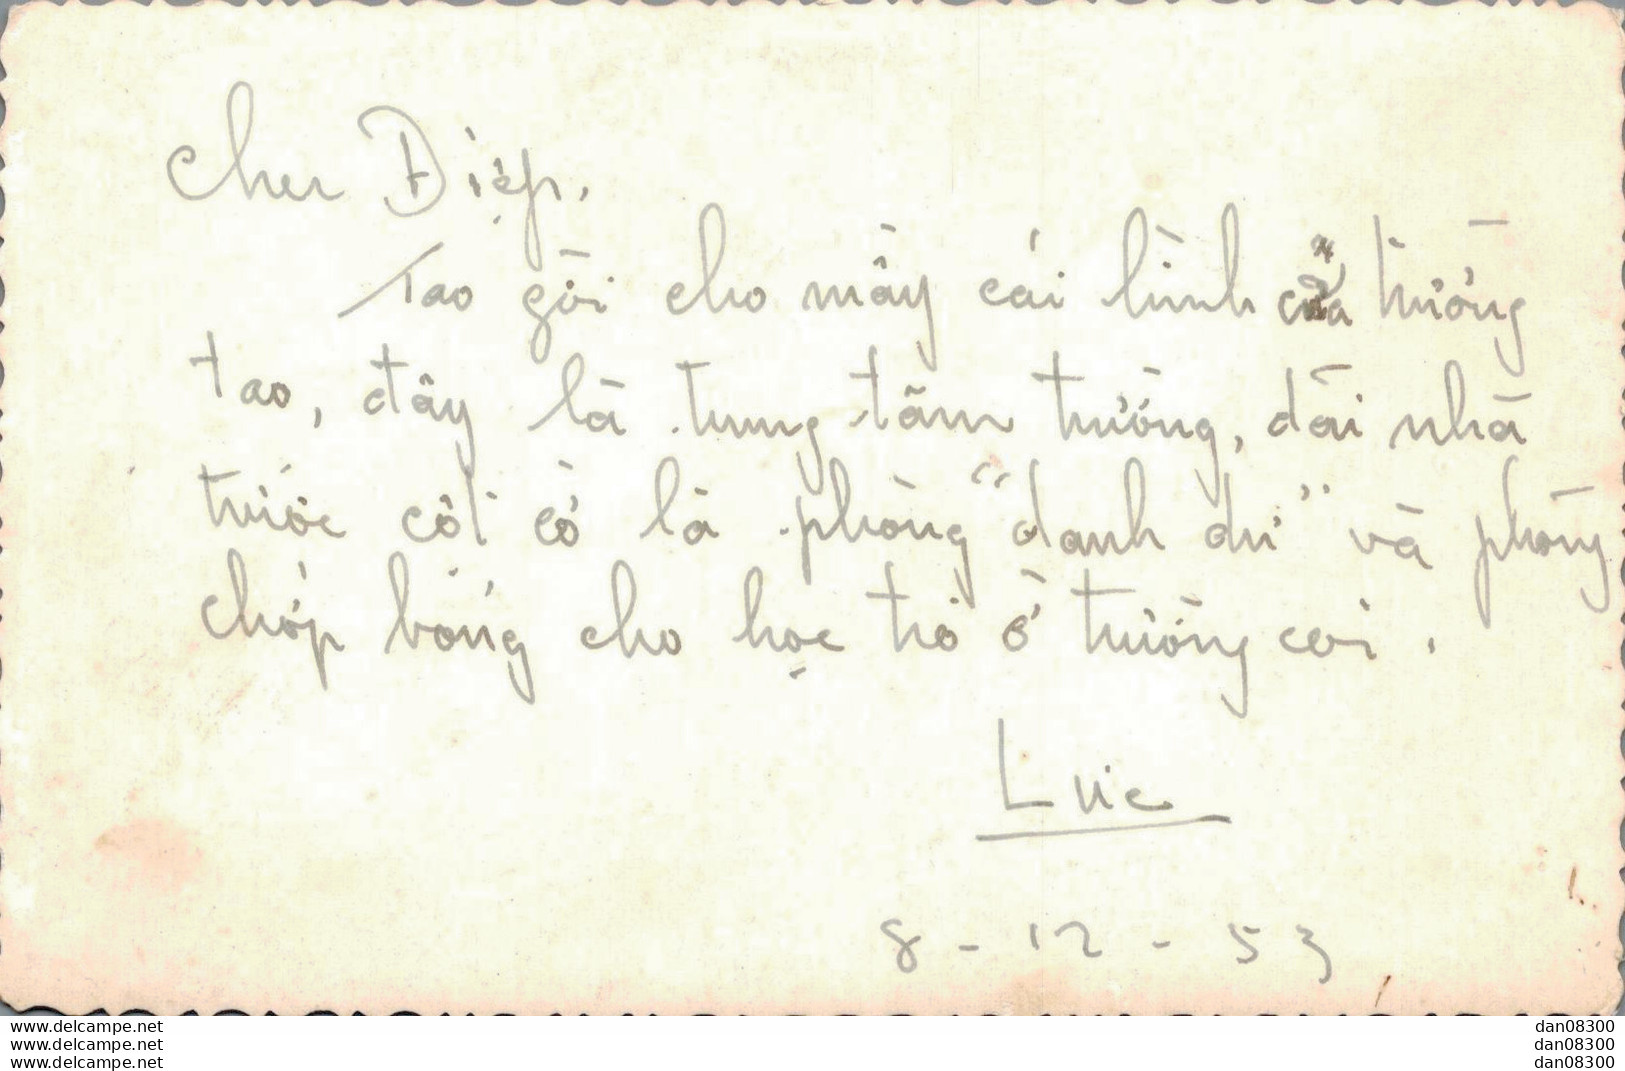 Cher Điệp,
Tao gởi cho mầy cái hình của trường
tao, đây là trung tâm trường, dãi nhà
trước cột cờ là phòng "danh dự" và phòng
chớp bóng cho học trò ở trường coi.
Lực
8-12-53
www.delcampe.net
www.delcampe.net
www.delcampe.net
dan08300
dan08300
dan08300